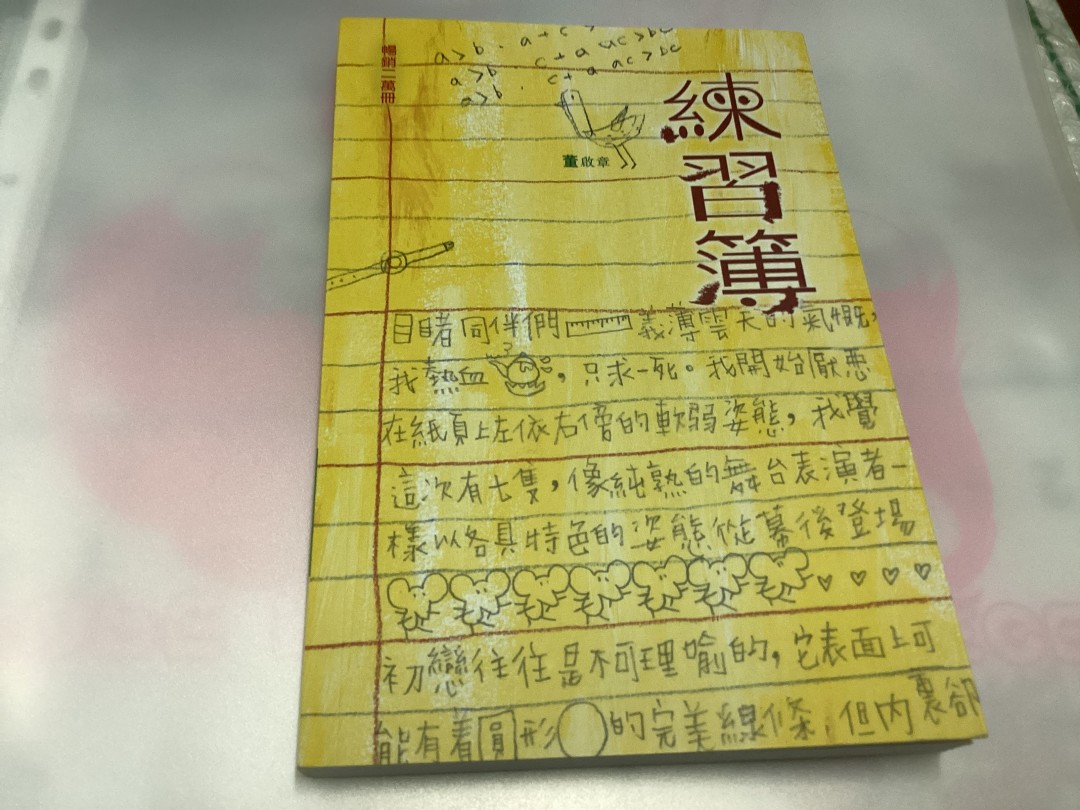 暢銷二萬冊
a>b. a+c> ac>bc
a>b c+a ac>bc
a>b. c+
練習簿
董啟章
目睹同伴們義薄雲天的氣慨,
我熱血,只求一死。我開始厭惡
在紙頁上左依右傍的軟弱姿態,我覺
這次有七隻,像純熟的舞台表演者一
樣以各具特色的姿態從幕後登場
初戀往往是不可理喻的,它表面上可
能有着圓形的完美線條,但內裏卻